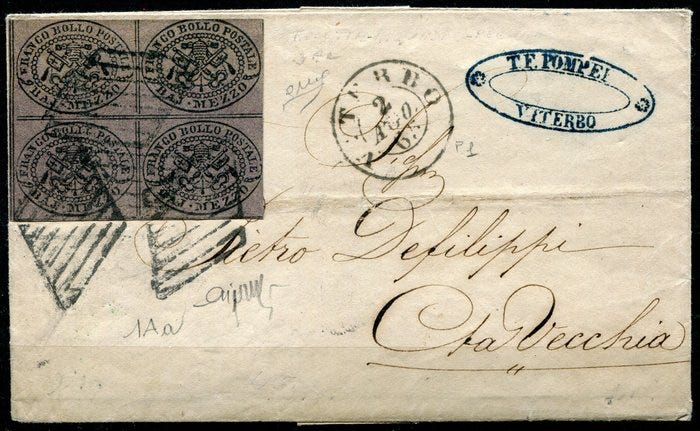 FRANCO BOLLO POSTALE
BAJ. MEZZO
FRANCO BOLLO POSTALE
BAJ. MEZZO
FRANCO BOLLO POSTALE
BAJ. MEZZO
FRANCO BOLLO POSTALE
BAJ. MEZZO
VITERBO
2
AGO.
T.F. POMPEI
VITERBO
P1
Sigr
Pietro Defilippi
Cta Vecchia
1Aa